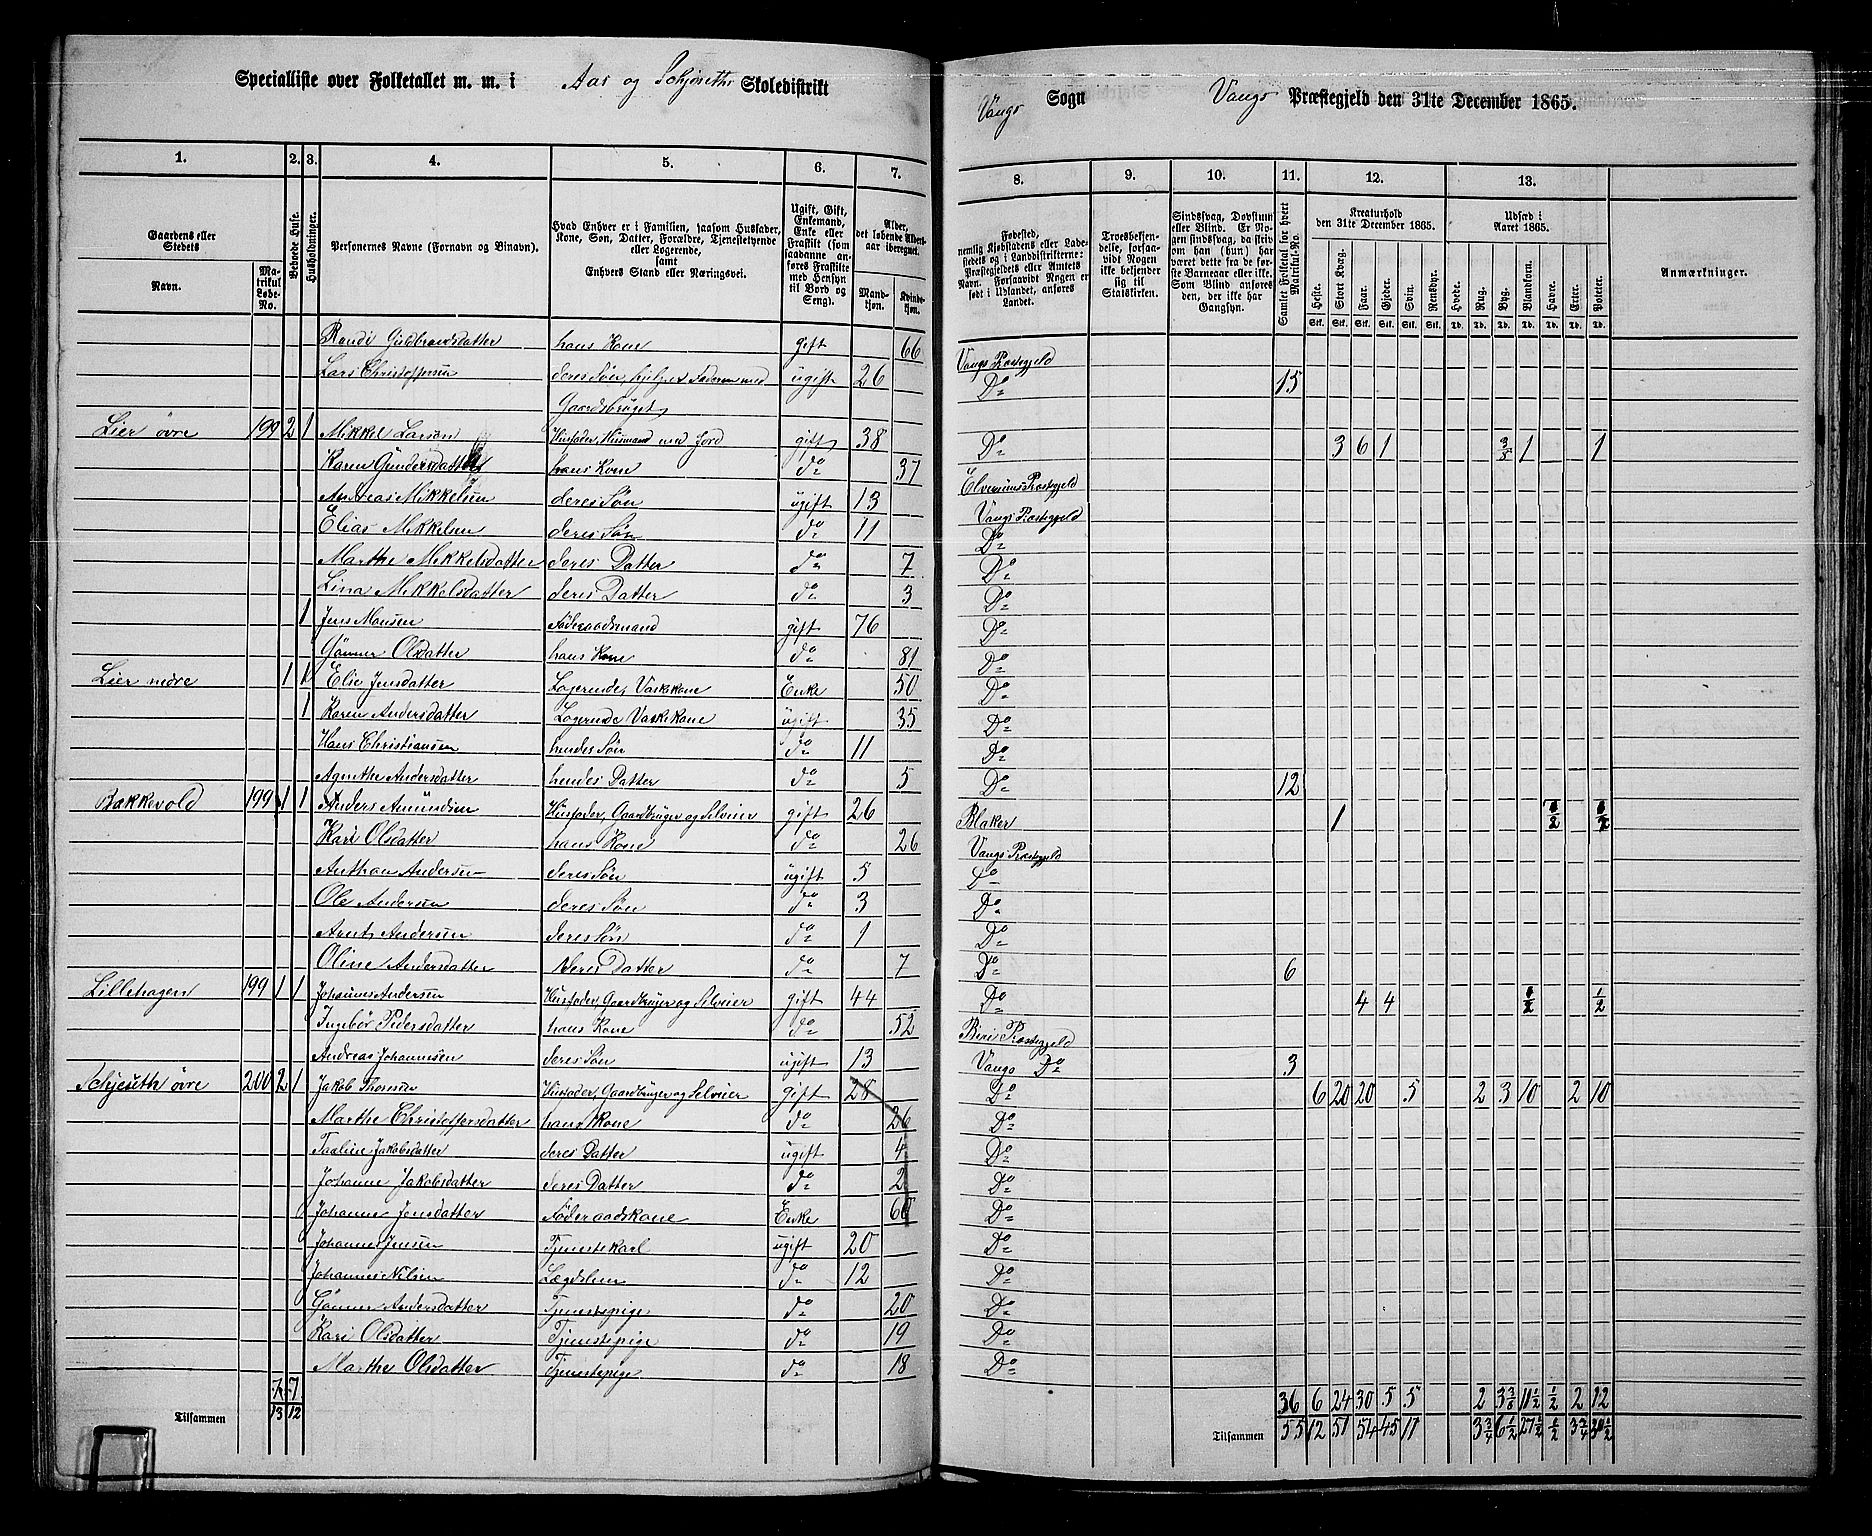 Specialliste over Folketallet m. m. i Aas og Skjeseths Skoledistrikt
Vangs Sogn Vangs Præstegjeld den 31te December 1865.
1. 2. 3. 4. 5. 6. 7.
8. 9. 10. 11. 12. 13.
Gaardens eller Stedets Navn. Matrikul Løbe-No.
Beboede Huse.
Husholdninger.
Personernes Navne (Fornavn og Binavn).
Hvad Enhver er i Familien, saasom Husfader, Kone, Søn, Datter, Forældre, Tjenestetyende eller Logerende, samt Enhvers Stand eller Næringsvei.
Ugift, Gift, Enkemand, Enke eller Fraskilt (som saadanne anføres Fraskilte med Hensyn til Bord og Seng).
Alder, det løbende Aldersaar iberegnet. Mandkjøn. Kvindekjøn.
Fødested, nemlig Kjøbstadens eller Ladestedets og i Landdistrikterne: Præstegjeldets eller Amtets Navn. Forsaavidt Nogen er født i Udlandet, anføres Landet.
Troesbekjendelse, forsaavidt Nogen ikke bekjender sig til Statskirken.
Sindssvag, Døvstum eller Blind. Er Nogen sindssvag, da skrives om han (hun) har været dette fra de første Barneaar eller ikke. Som Blind anføres den, der ikke har Gangsyn.
Samlet Folketal for hvert Matrikul-No.
Kreaturhold den 31te December 1865.
Heste. Stort Kvæg. Faar. Gjeder. Svin. Rensdyr.
Udsæd i Aaret 1865.
Hvede. Rug. Byg. Blandkorn. Havre. Erter. Poteter.
Anmærkninger.
Randi Guldbrandsdatter hans Kone gift 66 Vangs Præstegjeld
Lars Christoffersen deres Søn, hjelper Faderen med ugift 26 Do 15
Gaardsbruget
Lier øvre 199 2 1 Mikkel Larsen Husfader, Husmand med Jord gift 38 Do 3 6 1 1 1
Karen Gundersdatter hans Kone do 37 Elverums Præstegjeld
Andreas Mikkelsen deres Søn ugift 13 Vangs Præstegjeld
Elias Mikkelsen deres Søn do 11 Do
Marthe Mikkelsdatter deres Datter do 7 Do
Lina Mikkelsdatter deres Datter do 3 Do
1 Jens Monsen Føderaadsmand gift 76 Do
Gunner Olsdatter hans Kone do 81 Do
Lier nedre 1 1 Elie Jensdatter Logerende, Vaskekone Enke 50 Do
1 Karen Andersdatter Logerende Vaskekone ugift 35 Do
Hans Christiansen hendes Søn do 11 Do
Agnethe Andersdatter hendes Datter do 5 Do 12
Bakkevold 199 1 1 Anders Amundsen Husfader, Gaardbruger og Selveier gift 26 Blaker 1 1/2 1/2
Kari Olsdatter hans Kone do 26 Vangs Præstegjeld
Anthon Andersen deres Søn ugift 5 Do
Ole Andersen deres Søn do 3 Do
Arnt Andersen deres Søn do 1 Do
Oline Andersdatter deres Datter do 7 Do 6
Lillehagen 199 1 1 Johannes Andersen Husfader, Gaardbruger og Selveier gift 44 Do 4 4 1/2 1/2
Ingebør Pedersdatter hans Kone do 52 Biri Præstegjeld
Andreas Johannesen deres Søn ugift 13 Vangs Do 3
Skjeseth øvre 200 2 1 Jakob Thomsen Husfader, Gaardbruger og Selveier gift 28 Do 6 20 20 5 2 3 10 2 10
Marthe Christoffersdatter hans Kone do 26 Do
Taaline Jakobsdatter deres Datter ugift 4 Do
Johanne Jakobsdatter deres Datter do 2 Do
Johanne Jensdatter Føderaadskone Enke 60 Do
Johannes Jensen Tjenestekarl ugift 20 Do
Johannes Nilsen Lægdslem do 12 Do
Gunner Andersdatter Tjenestepige do 20 Do
Kari Olsdatter Tjenestepige do 19 Do
Marthe Olsdatter Tjenestepige do 18 Do
7 7 36 6 24 30 5 5 2 11 1/2 1/2 2 12
Tilsammen 13 12 Tilsammen 55 12 51 54 45 11 3 3/4 6 1/2 27 1/2 1/2 3 3/4